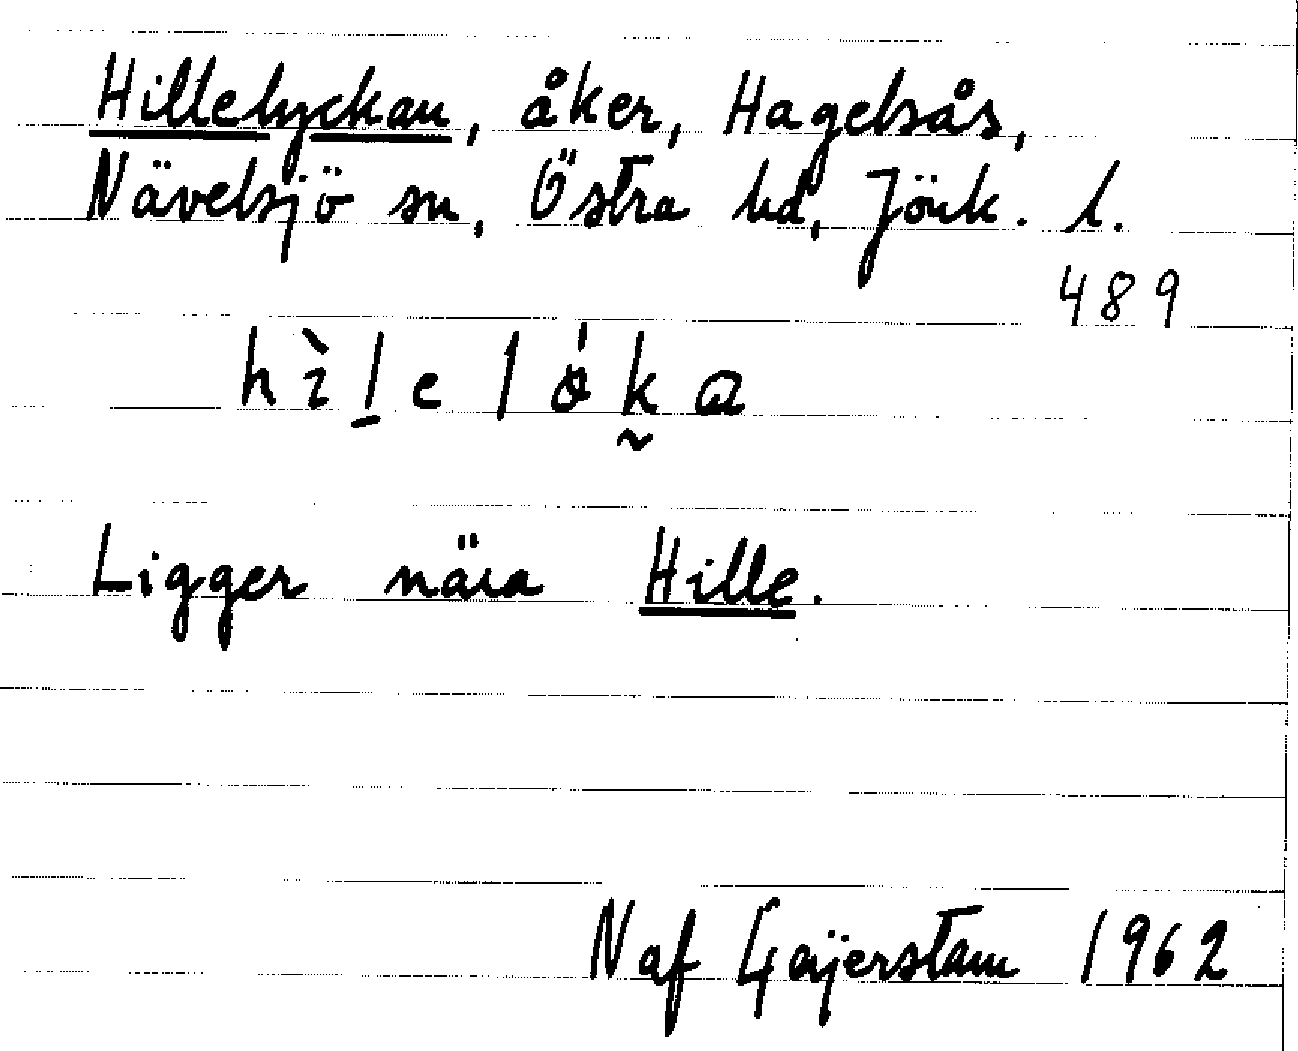 Hillelyckan, åker, Hagelsås,
Nävelsjö sn, Östra hd, Jönk. l.
489
Ligger nära Hille.
Naf Gaijerstam 1962